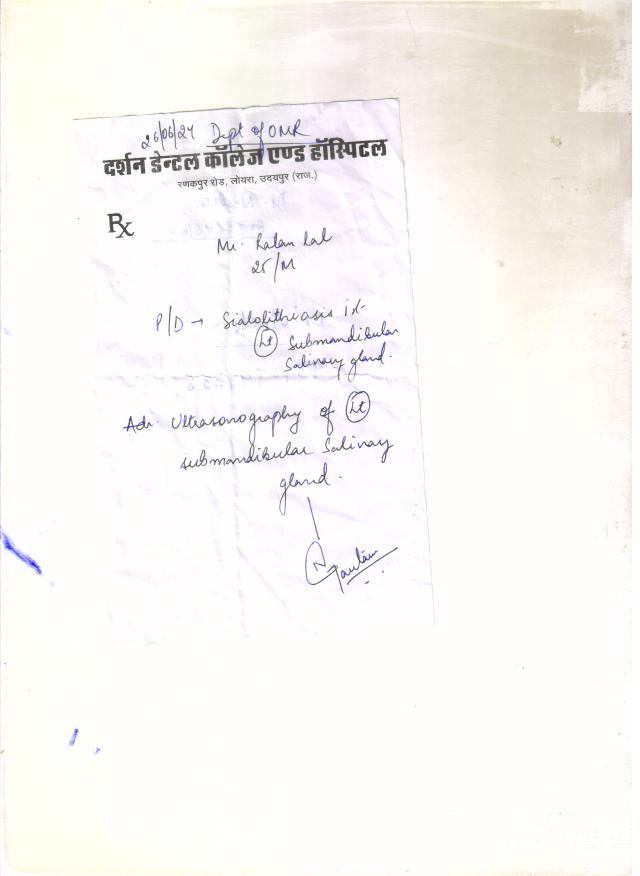 26/06/24 Dept of OMR
दर्शन डेन्टल कॉलेज एण्ड हॉस्पिटल
रणकपुर रोड़, लोयरा, उदयपुर (राज.)
Rx
Mr. Ratan Lal
25/M
P/D → Sialolithiasis i.r.t
Lt Submandibular
Salivary gland.
Adv. Ultrasonography of Lt
submandibular Salivary
gland.
Gautam